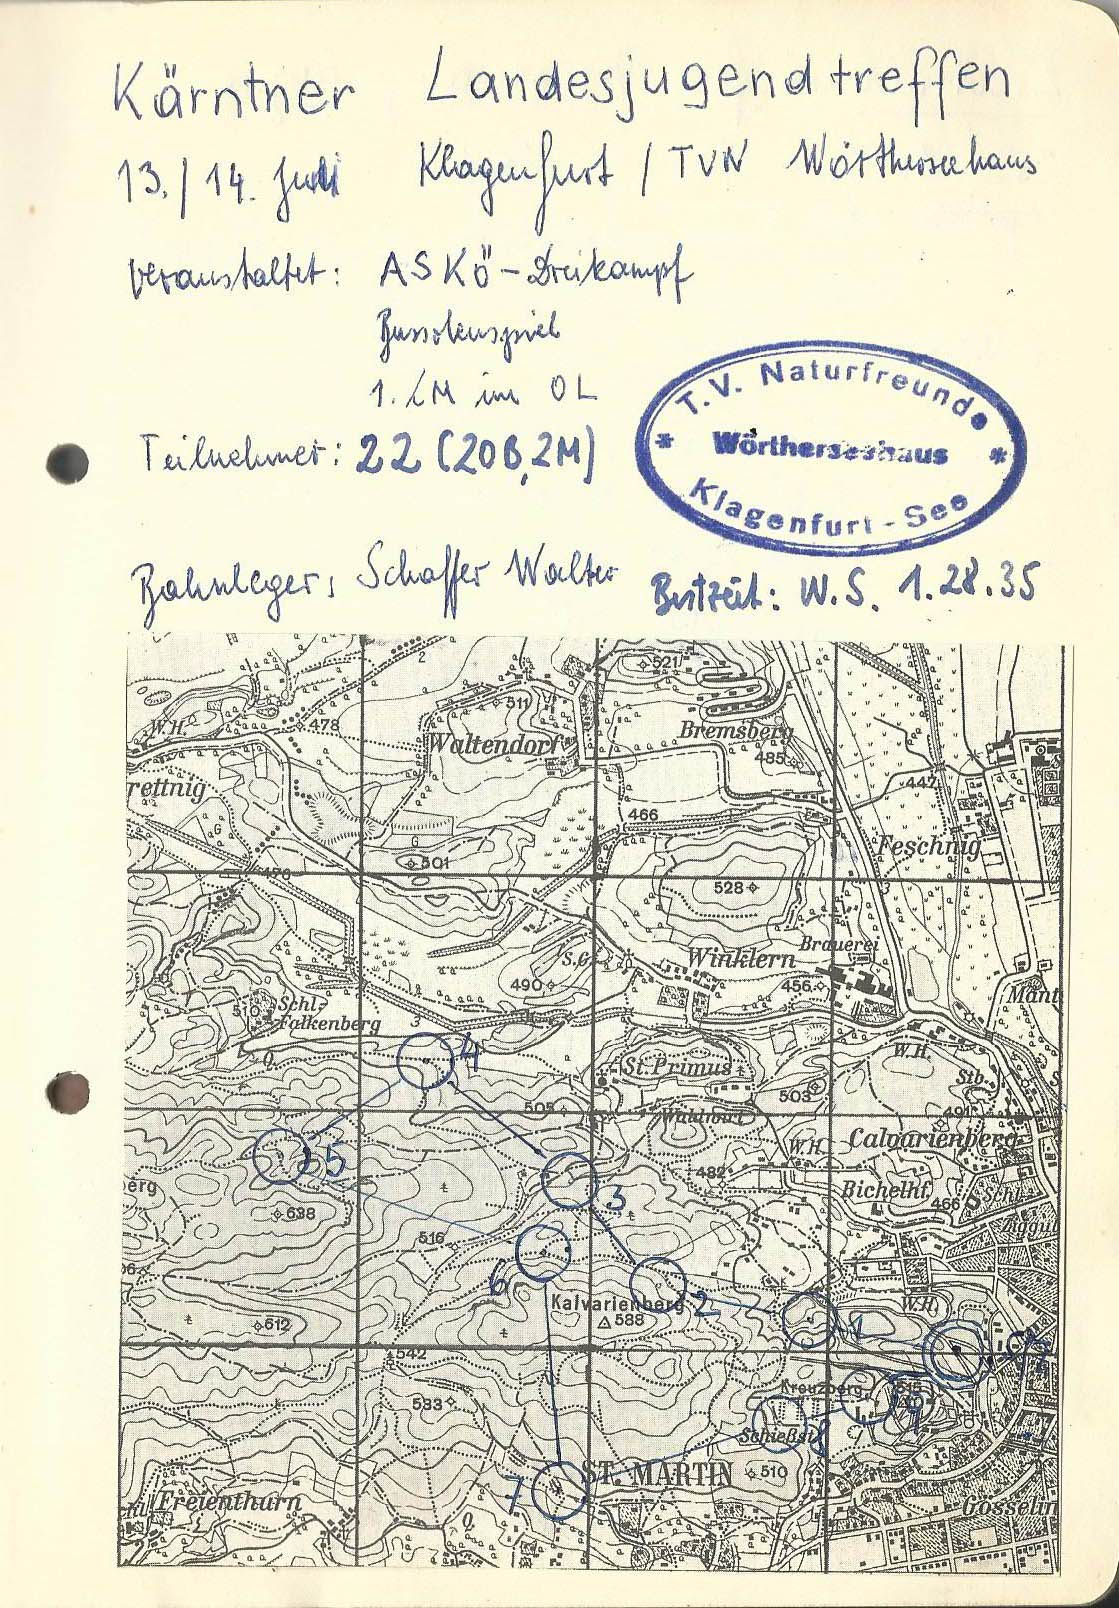 Kärntner Landesjugendtreffen
13./14. Juli Klagenfurt / TVN Wörtherseehaus
veranstaltet: ASKÖ-Dreikampf
Bussolenspiel
1. LM im OL
T.V. Naturfreunde
* Wörtherseehaus *
Klagenfurt-See
Teilnehmer: 22 (20B, 2M)
Bahnleger: Schaffer Walter Bestzeit: W.S. 1.28.35
2
521
W.H.
478
511
Waltendorf
Bremsberg
485
rettnig
447
466
Feschnig
G
G
501
476
528
3
Brauerei
S.G.
Winklern
490
456
Schl.
Falkenberg
510
Mant
3
Q.
4
St. Primus
W.H.
Stb.
503
505
Waldwirt
491
Calvarienberg
5
W.H.
482
Bichelhf.
466
Schl.
berg
638
3
516
6
Kalvarienberg
588
2
1
W.H.
612
542
Kreuzberg
515
533
9
Schießst.
8
ST. MARTIN
510
7
Freienthurn
Q.
Gösselin